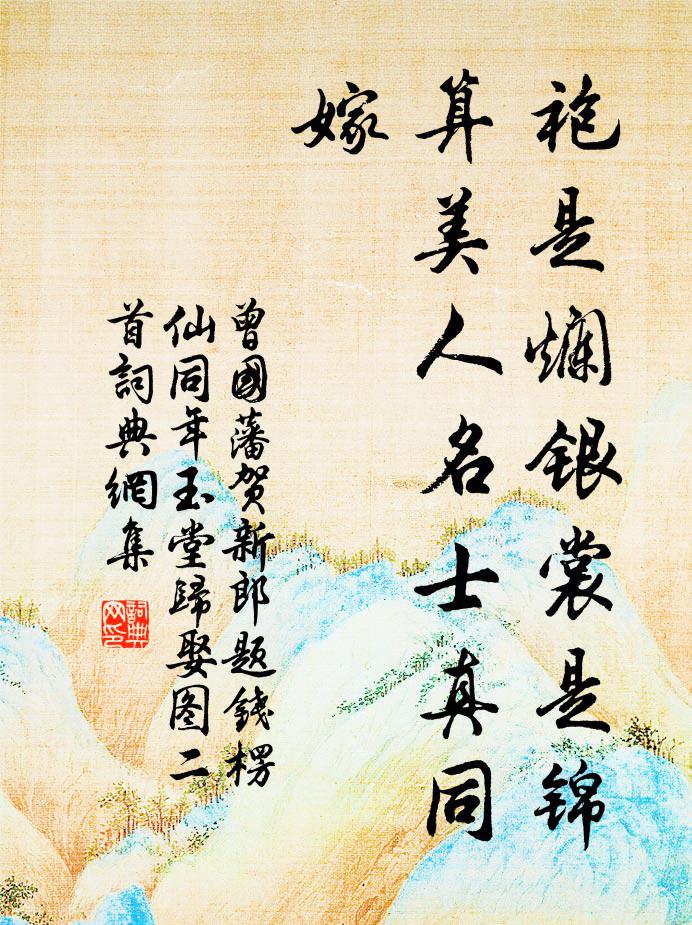 袍是爛银裳是锦
算美人名士真同
嫁
曾國藩贺新郎题錢楞
仙同年玉堂歸娶图二
首詞典網集
詞典
网印